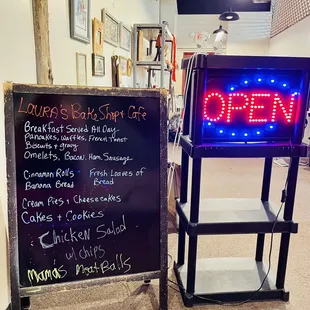 LAURA'S Bake Shop & Cafe
Breakfast Served All Day
Pancakes, Waffles, French Toast
Biscuts + gravy
Omelets, Bacon, Ham, Sausage
Cinnamon Rolls
Banana Bread
Fresh Loaves of
Bread
Cream Pies + Cheesecakes
Cakes + Cookies
Chicken Salad
w/ chips
Mama's Meat Balls
OPEN
OPEN